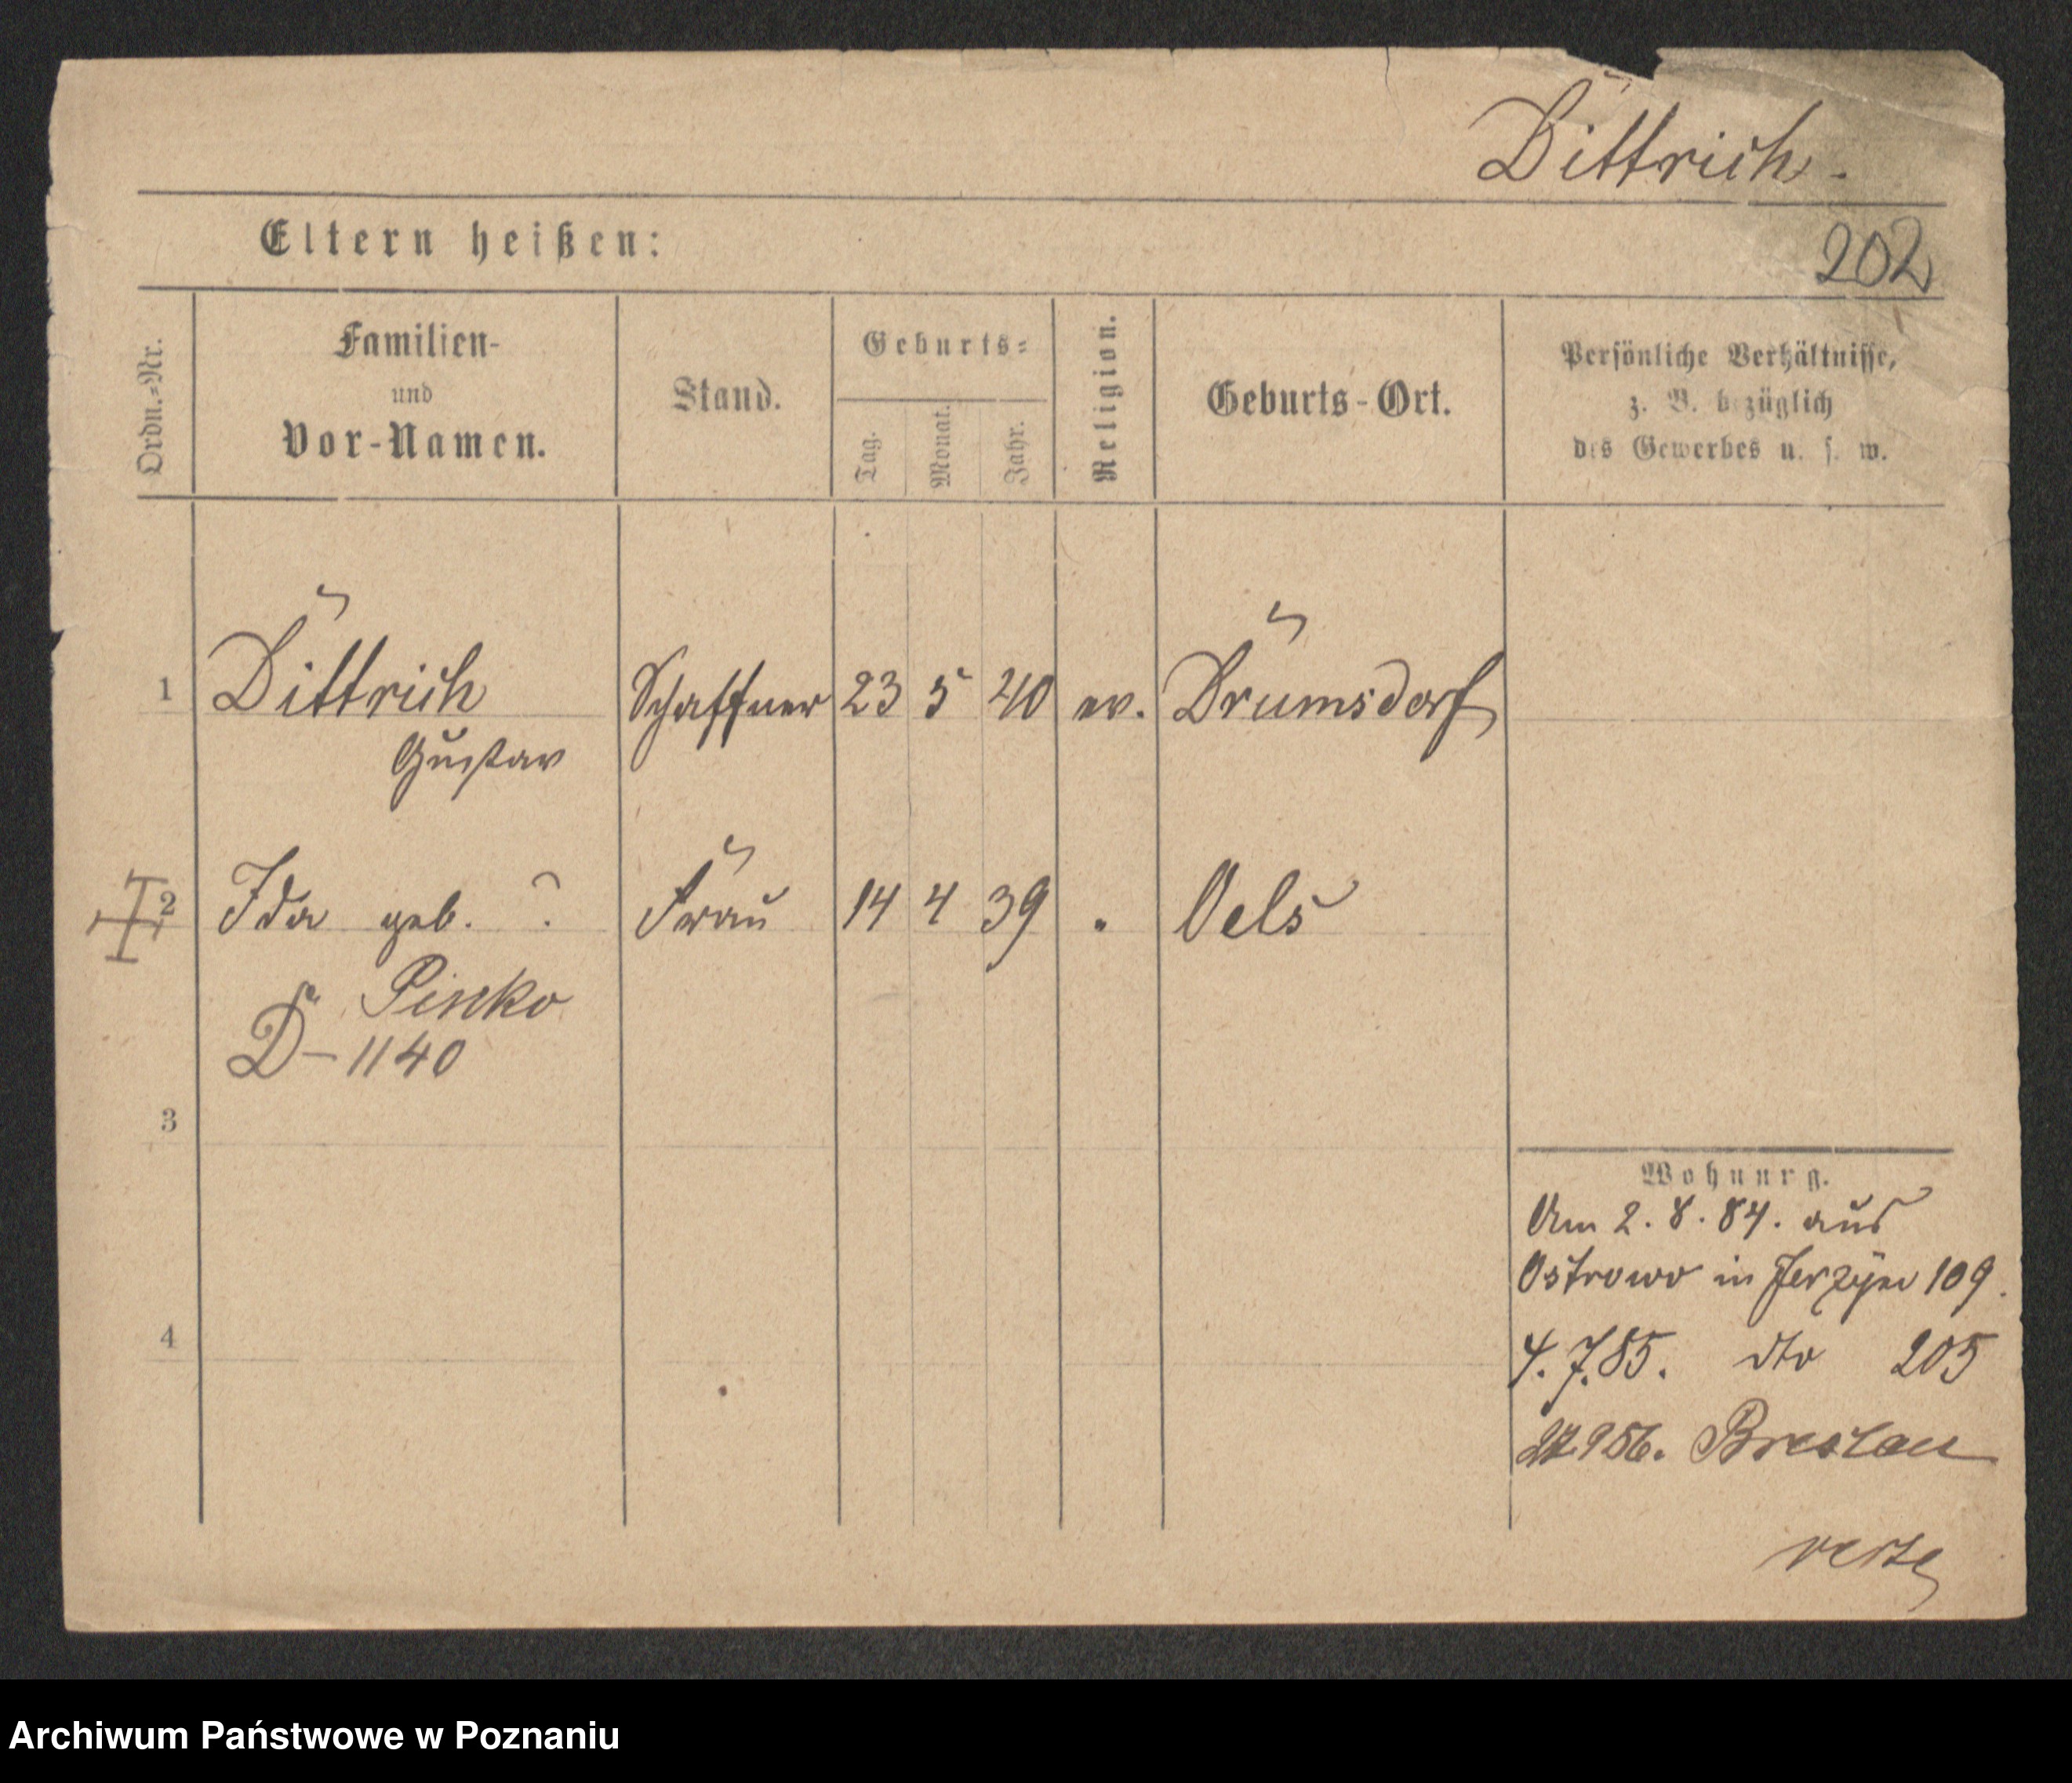 Dittrich.
Eltern heißen:
202
Ordn.-Nr.
Familien-
und
Vor-Namen.
Stand.
Geburts-
Tag.
Monat.
Jahr.
Religion.
Geburts-Ort.
Persönliche Verhältnisse,
z. B. bezüglich
des Gewerbes u. s. w.
1 Dittrich Schaffner 23 5 40 ev. Drumsdorf
Gustav
2 Ida geb. ? Frau 14 4 39 " Oels
Pinko
D-1140
3
Wohnung.
Am 2.8.84. aus
Ostrowo in Jerzyce 109.
4
4.7.85. dto 205
Breslau
Archiwum Państwowe w Poznaniu